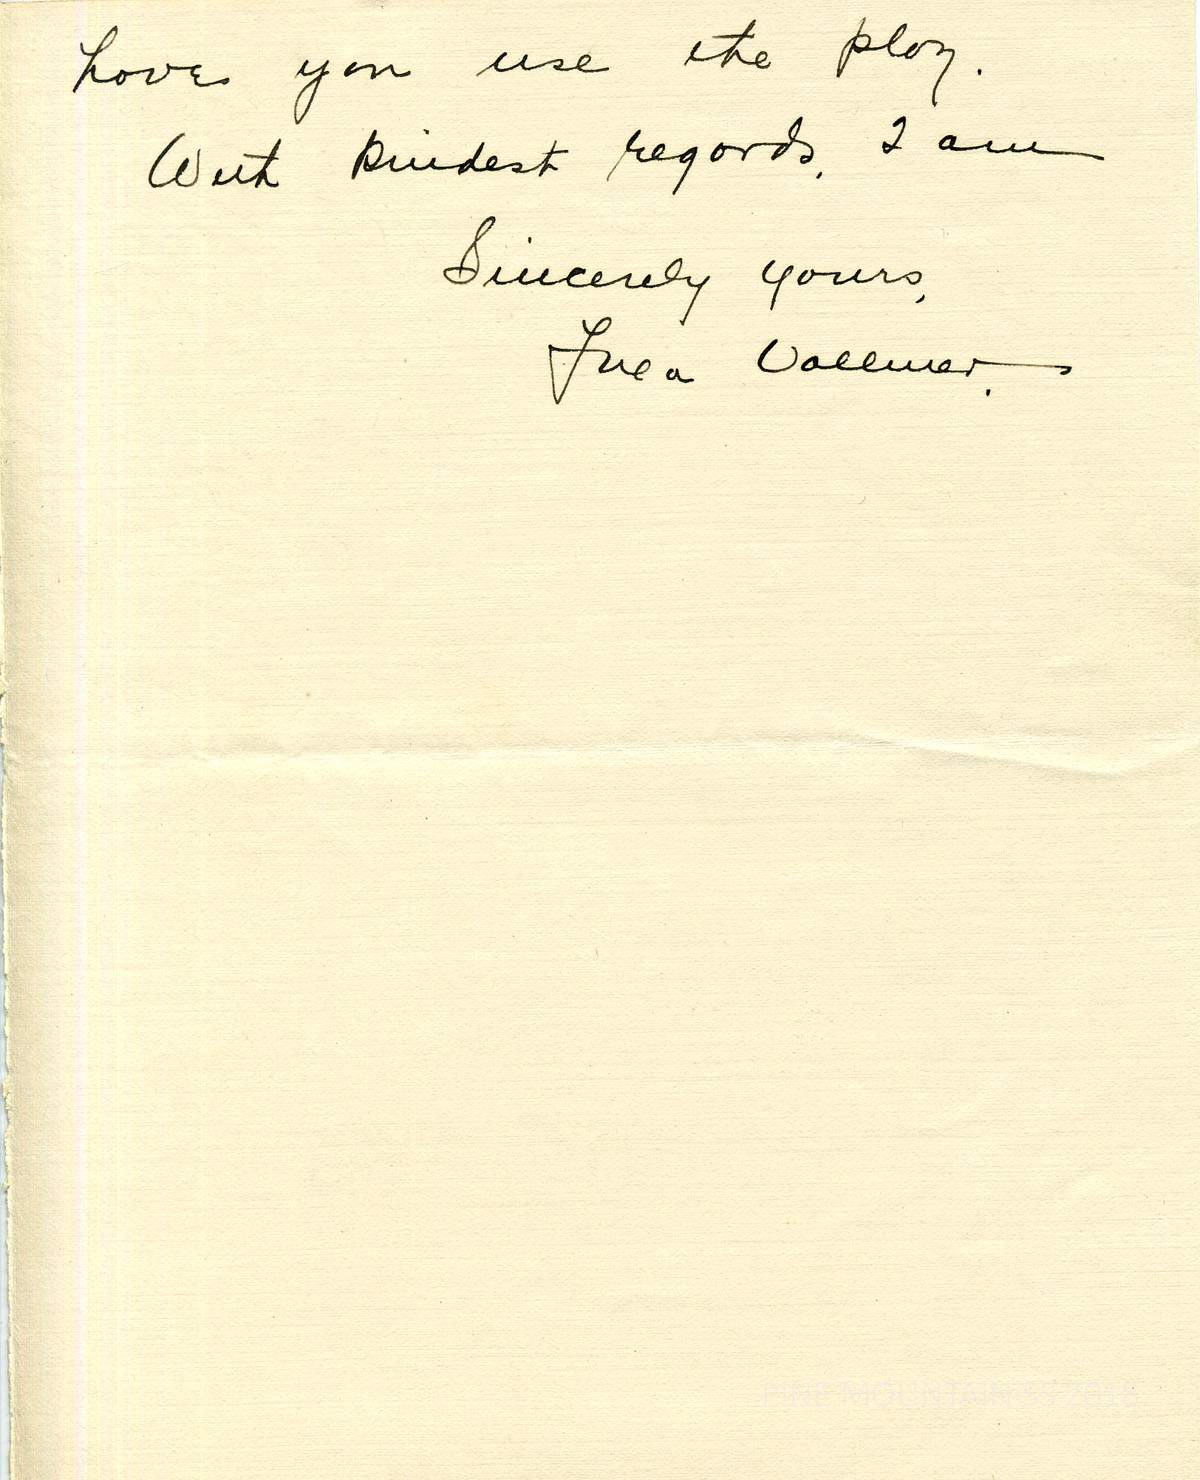 have you use the play.
With kindest regards, I am
Sincerely yours,
Lula Vollmer.
PINE MOUNTAIN SS 2018